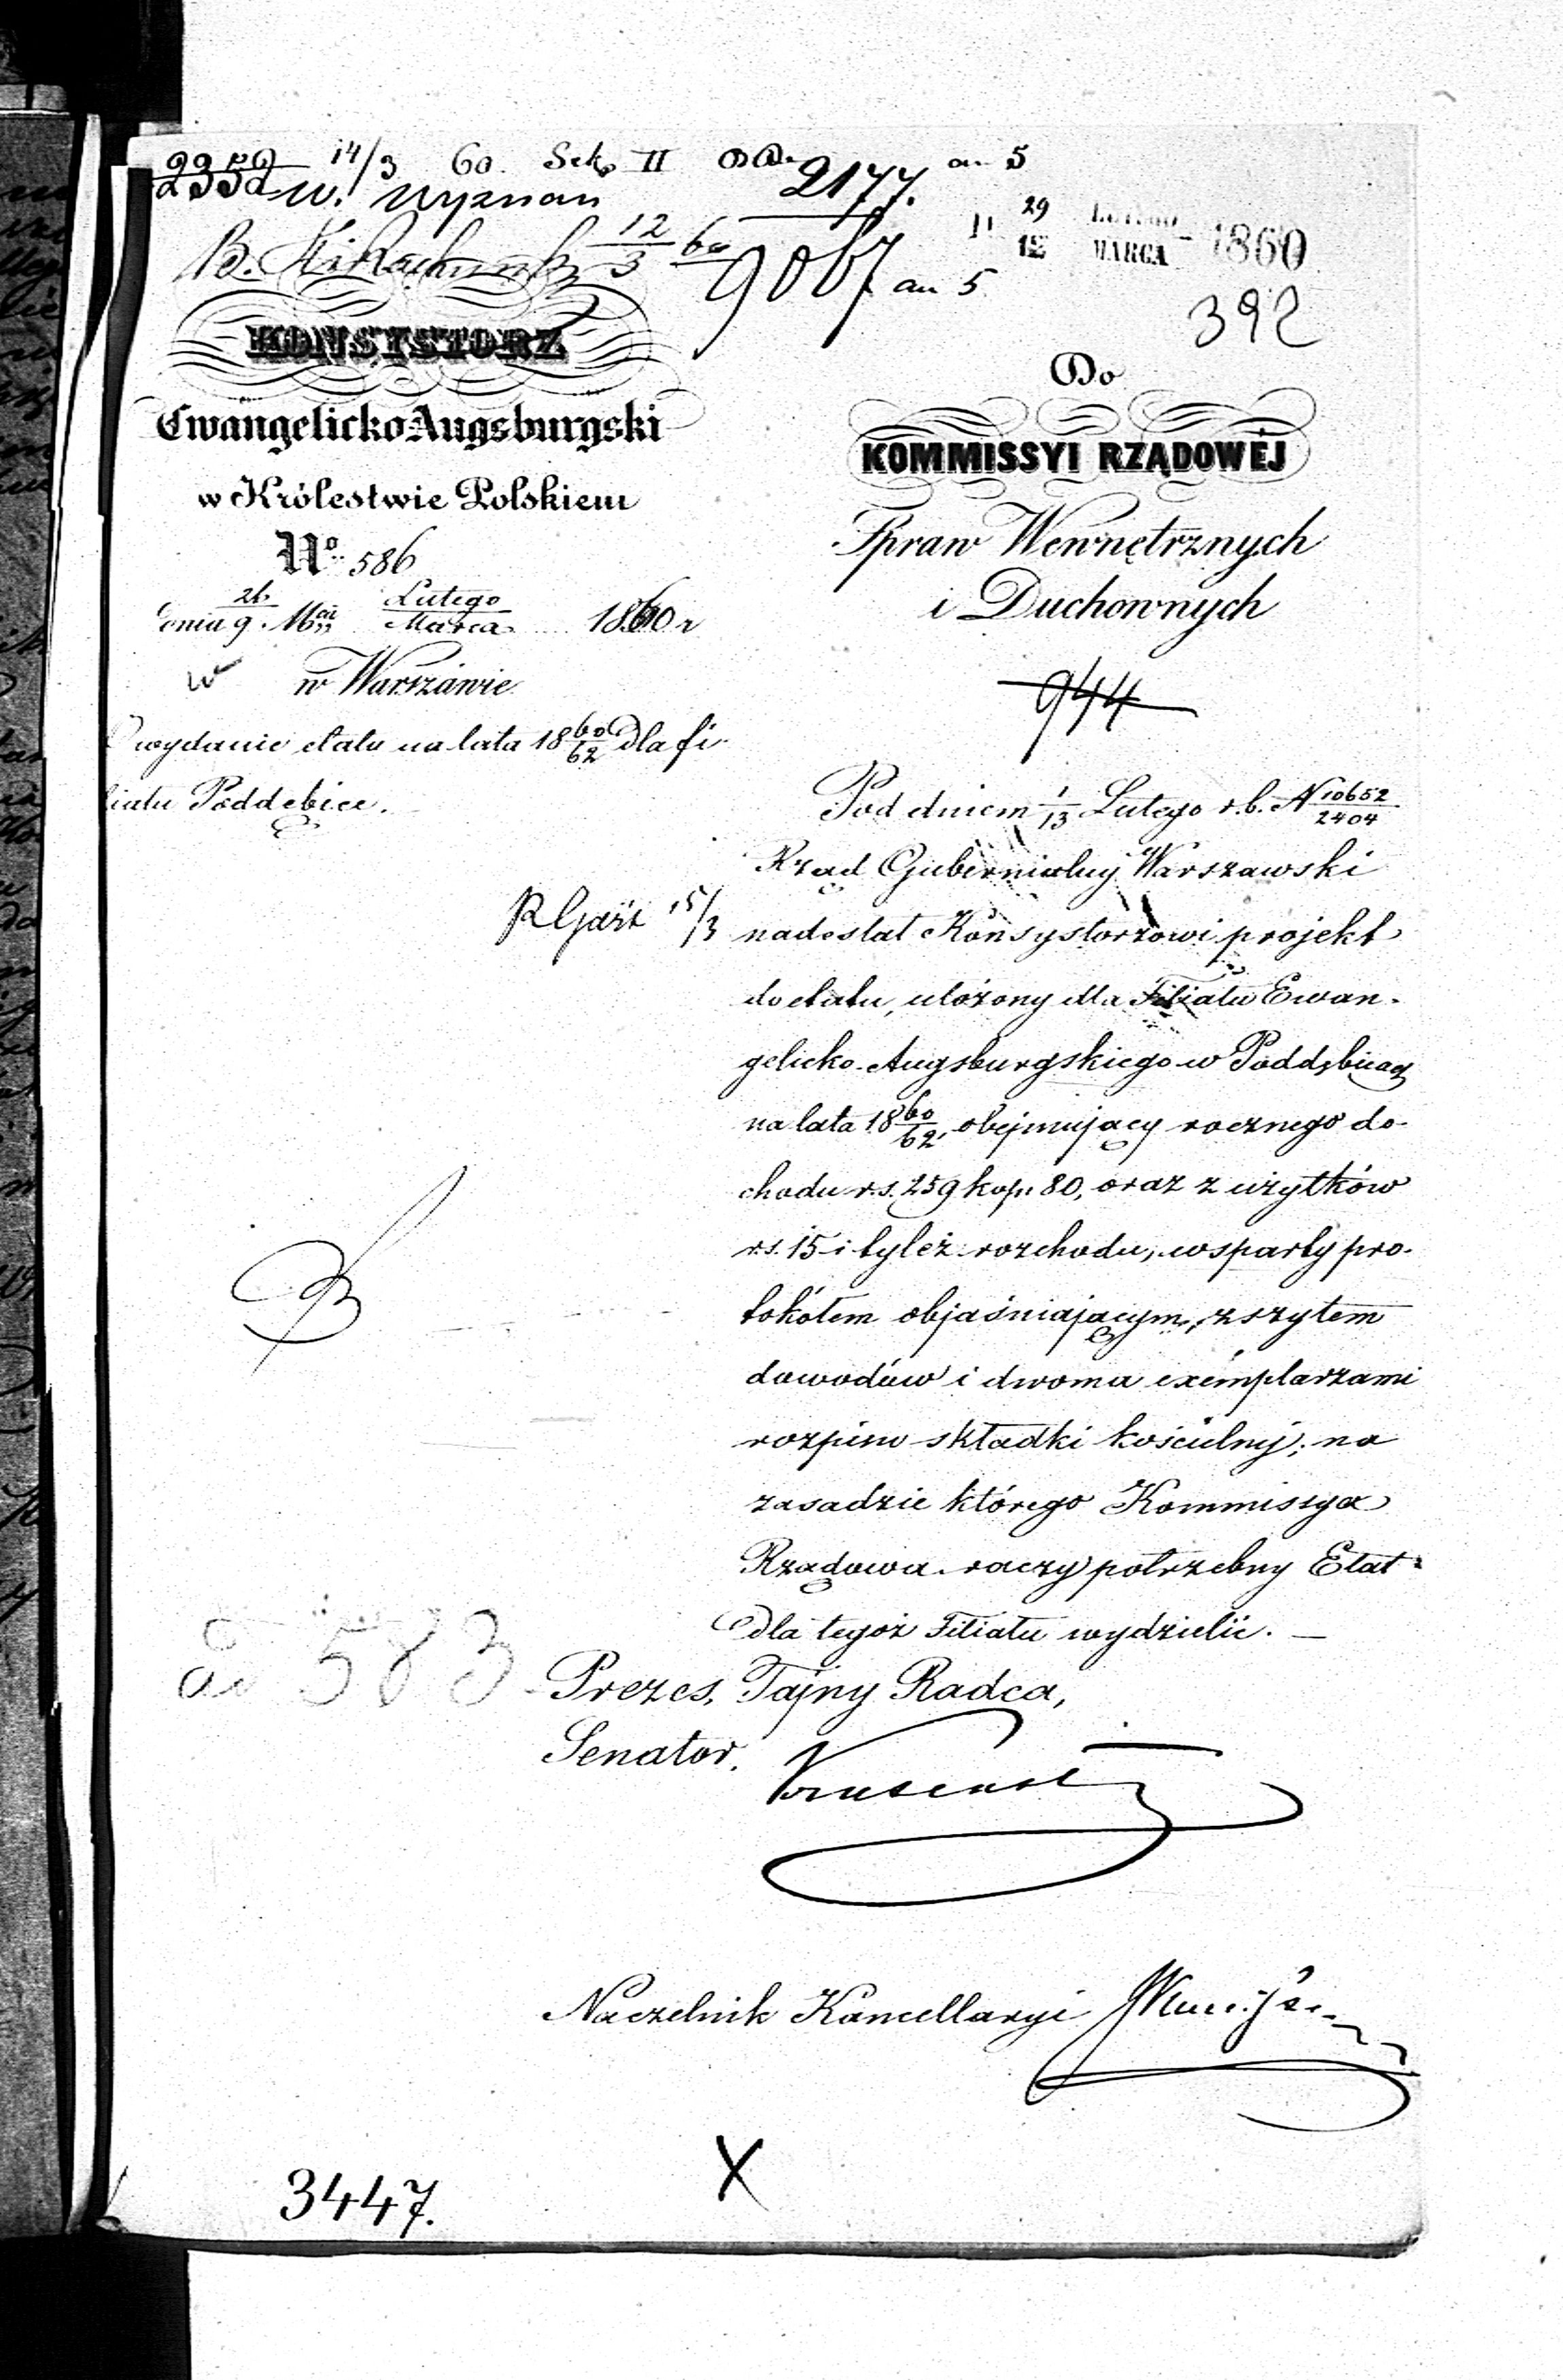 2352 14/3 60. Sek. II 2177. an 5
w. wyznań
12/3 60 9067 an 5
29 LUTEGO
12 MARCA 1860
392
KONSYSTORZ
Ewangelicko-Augsburgski
w Królestwie Polskiem
No 586
dnia 26/9 Mca Lutego/Marca 1860 r
w Warszawie
O wydanie etatu na lata 18 60/62 dla fi-
liału Poddębice.
Do
KOMMISSYI RZĄDOWÉJ
Spraw Wewnętrznych
i Duchownych
944
Pod dniem 1/13 Lutego r.b. N 10652/2404
Rząd Gubernialny Warszawski
15/3
nadesłał Konsystorzowi projekt
do etatu, ułożony dla Filiału Ewan-
gelicko-Augsburgskiego w Poddębicach
na lata 18 60/62, obejmujący rocznego do-
chodu r.s. 259 kop. 80, oraz z użytków
r.s. 15 i tyleż rozchodu, wsparty pro-
tokółem objaśniającym, zszytem
dowodów i dwoma exemplarzami
rozpisu składki kościelnéj; na
zasadzie którego Kommissya
Rządowa raczy potrzebny Etat
dla tegoż Filiału wydzielić. —
ad 583
Prezes, Tajny Radca,
Senator.
Naczelnik Kancellaryi
X
3447.